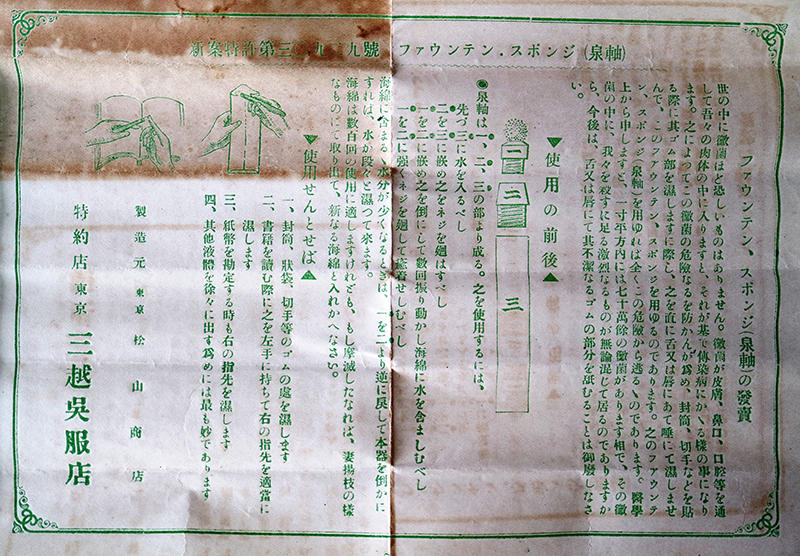 新案特許第三〇九二九號 ファウンテン、スポンジ(泉軸)
ファウンテン、スポンジ(泉軸)の發賣
世の中に黴菌ほど恐しいものはありません。黴菌が皮膚、鼻口、口腔等を通
して吾々の肉体の中に入りますと、それが基で傳染病にかゝる樣な事になり
ます。之によつてこの黴菌の危險なるを防かんが爲め、封筒、切手などを貼
る際に其ゴム部を濕しますに際し、之を直に舌又は唇にあて唾にて濕しませ
んで、このファウンテン、スポンジを用ゆるのであります。之のファウンテ
ン、スポンジ(泉軸)を用ゆれば全くこの危險から逃るゝのであります。醫學
上から申しますと、一寸平方内には七十萬餘の黴菌があります相で、その黴
菌の中に、我々を殺すに足る激烈なるものが無論混じて居るのでありますか
ら、今後は、舌又は唇にて其不潔なるゴムの部分を舐むることは御廢しなさ
い。
▼使用の前後▲
一
二
三
●泉軸は一、二、三の部より成る。之を使用するには、
先づ三に水を入るべし
二を三に嵌め之をネジを廻はすべし
一を二に嵌め之を倒にして數回振り動かし海綿に水を含ましむべし
一を二に强くネジを廻して密着せしむべし
海綿に含まる水分が少くなるときは、一を二より逆に戾して本器を倒かに
すれば、水が段々と濕つて來ます。
海綿は數百回の使用に適しますけれども、もし摩滅したなれば、妻揚枝の樣
なものにて取り出して、新なる海綿を入れかへなさい。
▼使用せんとせば▲
一、封筒、狀袋、切手等のゴムの處を濕します
二、書籍を讀む際に之を左手に持ちて右の指先を適當に
濕します
三、紙幣を勘定する時も右の指先を濕します
四、其他液體を徐々に出す爲めには最も妙であります
製造元 東京 松山商店
特約店 東京 三越吳服店